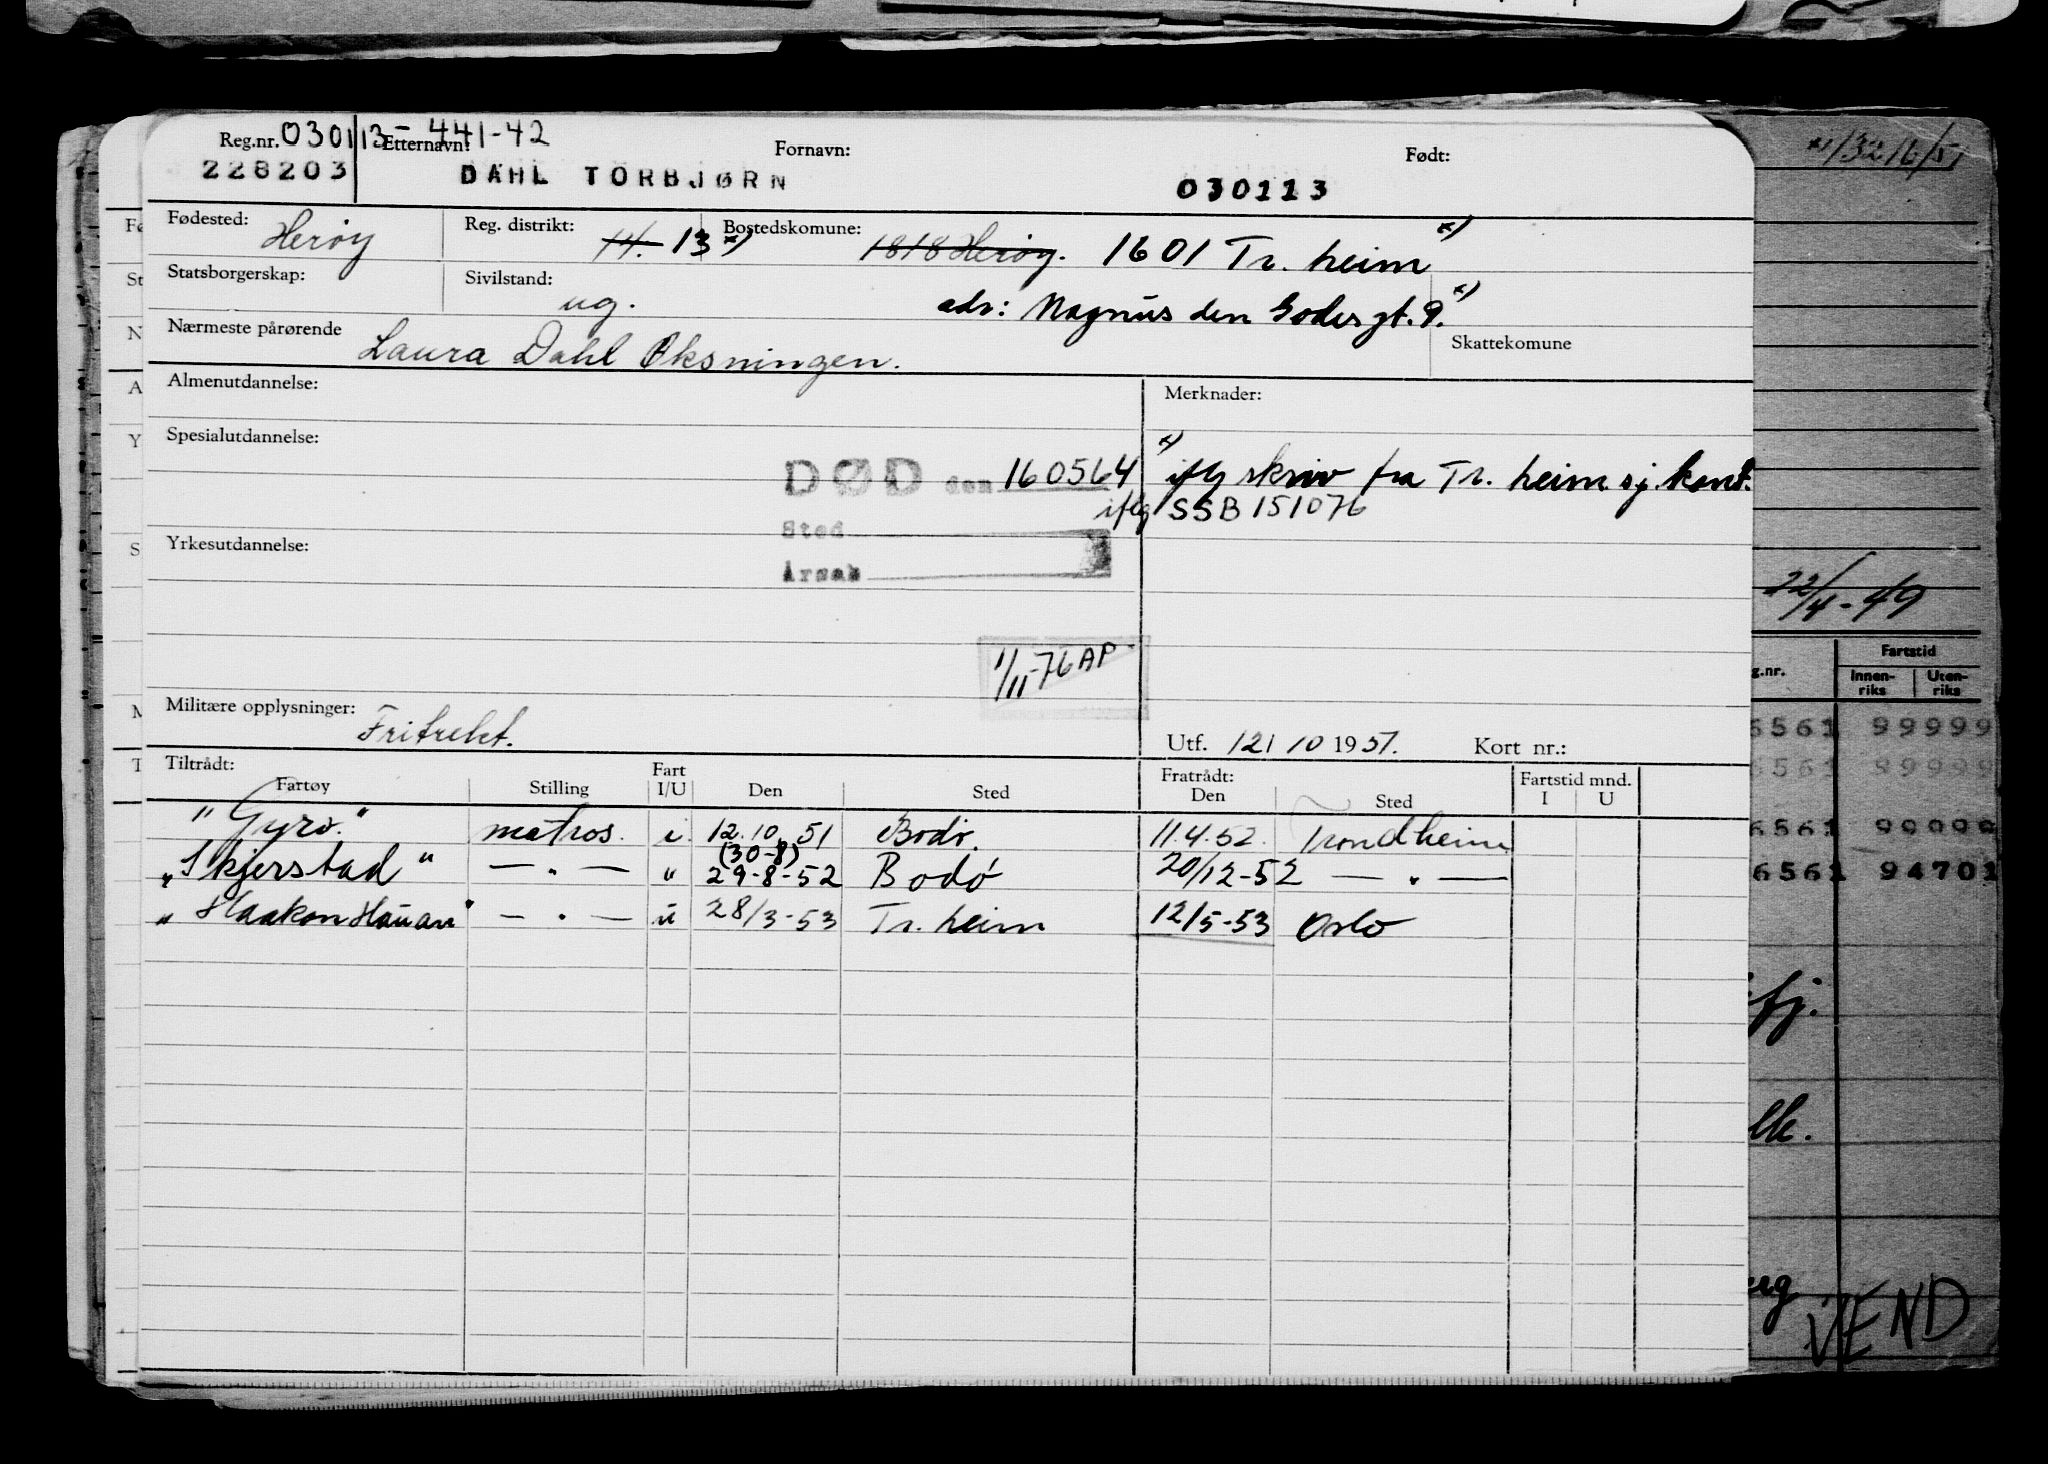 Reg.nr. 030113-441-42 Etternavn: Fornavn: Født:
228203 DAHL TORBJØRN 030113
Fødested: Herøy Reg. distrikt: 14. 13 x) Bostedskomune: 1818 Herøy. 1601 Tr. heim x)
Statsborgerskap: Sivilstand: ug. adr: Magnus den Godesgt. 9. x)
Nærmeste pårørende Laura Dahl Oksningen. Skattekomune
Almenutdannelse: Merknader:
Spesialutdannelse:
DØD den 160564 x) iflg skriv fra Tr. heim sj. kont.
iflg SSB 151076
Sted
Yrkesutdannelse:
Årsak
1/11-76 AP
Militære opplysninger: Fritrekt.
Utf. 12/10 1951. Kort nr.:
Tiltrådt: Fart Fratrådt: Fartstid mnd.
Fartøy Stilling I/U Den Sted Den Sted I U
"Gyro." matros. i. 12.10.51 Bodø. 11.4.52. Trondheim
(30-8)
"Skjerstad" — " — " 29-8-52 Bodø 20/12-52 — " —
"Haakon Hauan" — " — u 28/3-53 Tr. heim 12/5-53 Oslo
22/4-49
g.nr. Fartstid
Innen-riks Uten-riks
6561 99999
6561 89999
6561 99999
6561 94701
fj.
lk.
ug
VEND